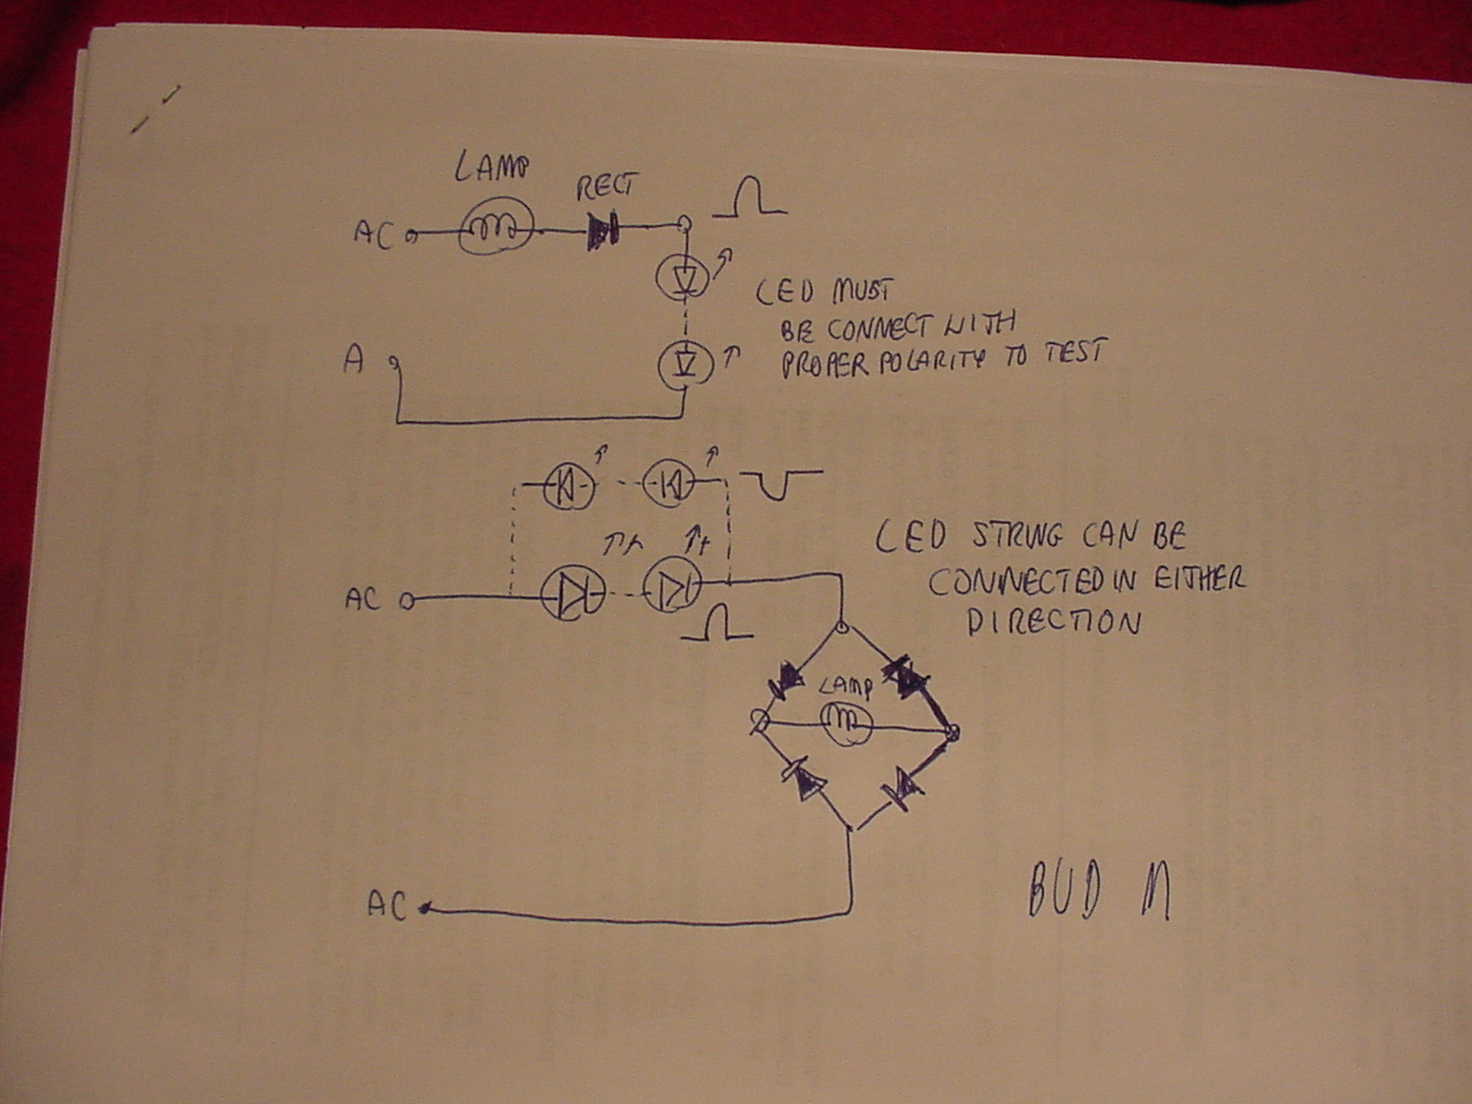 LAMP
RECT
AC
LED MUST
BE CONNECT WITH
PROPER POLARITY TO TEST
A
LED STRING CAN BE
CONNECTED IN EITHER
DIRECTION
AC
LAMP
AC
BUD M